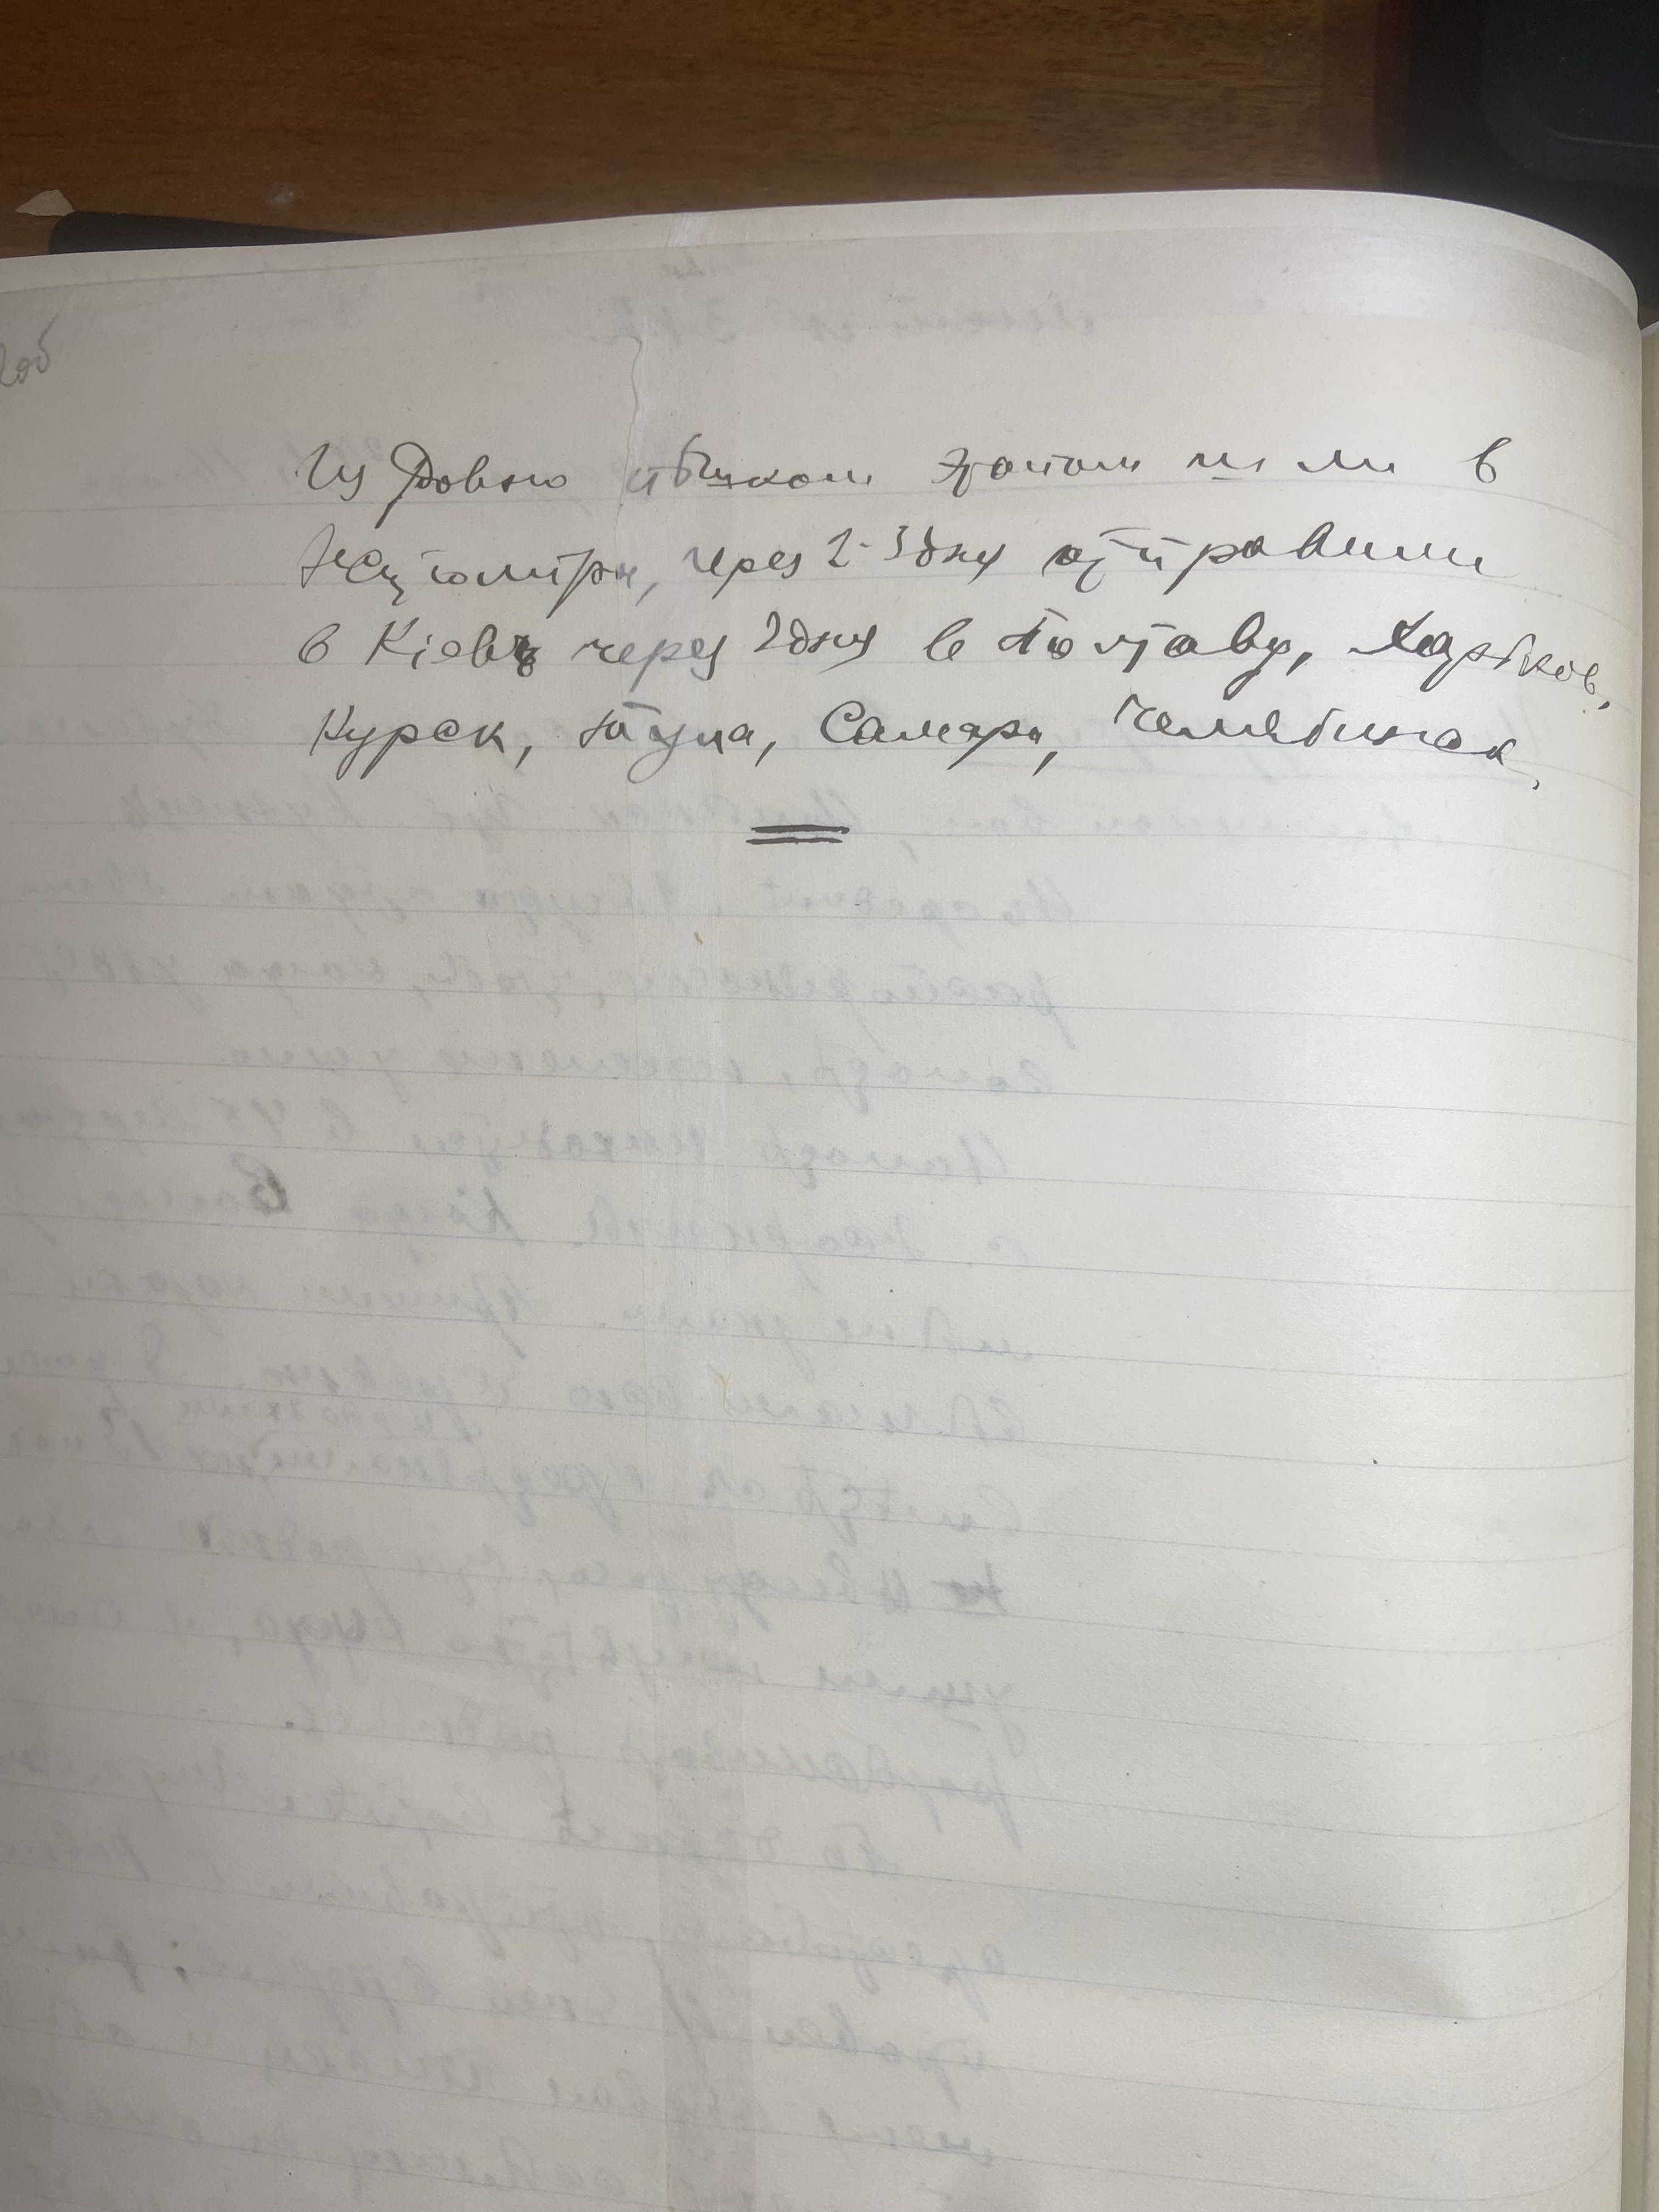 2об
Из Ровно пѣшком этапом шли в
Житомир, через 2-3 дня отправили
в Кіевъ через 2 дня в Полтаву, Харьков,
Курск, Тула, Самара, Челябинск,